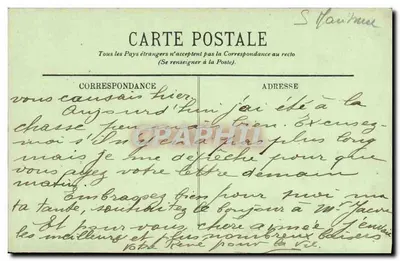 CARTE POSTALE
Tous les Pays étrangers n'acceptent pas la Correspondance au recto
(Se renseigner à la Poste).
CORRESPONDANCE
ADRESSE
vous causais hier.
Aujourd'hui j'ai été à la
chasse bien. Excusez
moi s'il n'y en a pas plus long
mais je me dépêche pour que
vous ayez votre lettre demain
matin.
Embrassez bien pour moi ma
tante, souhaitez le bonjour à Mr
Et pour vous, chère aimée, j'envoie
les meilleurs et plus nombreux baisers
Votre René pour la vie.
CPARAMA